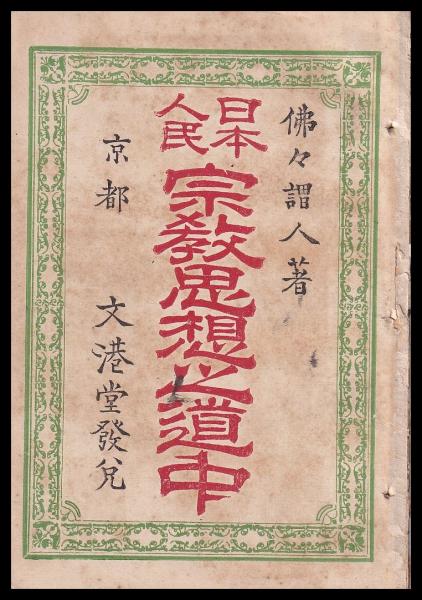 佛々謂人著
日本人民 宗教思想之道中
京都 文港堂發兌